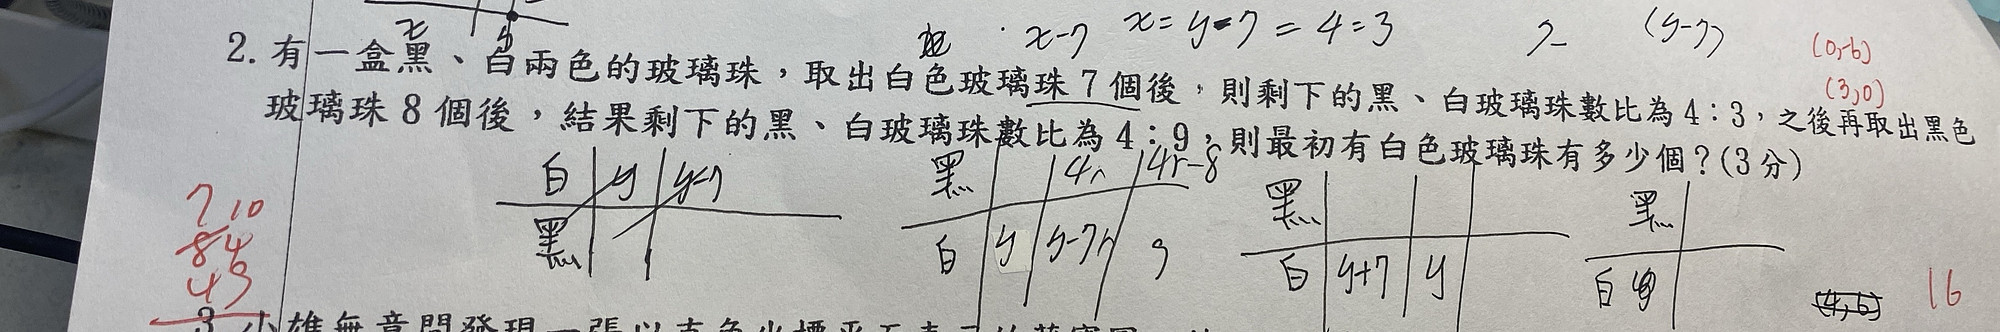 x y
x-7 x=y-7=4=3 (y-7) (0,-6)
2. 有一盒黑、白兩色的玻璃珠，取出白色玻璃珠 7 個後，則剩下的黑、白玻璃珠數比為 4：3，之後再取出黑色
(3,0)
玻璃珠 8 個後，結果剩下的黑、白玻璃珠數比為 4：9，則最初有白色玻璃珠有多少個？(3 分)
白 y y-7
黑
黑 4r 4r-8
白 y y-7r 9
黑
白 y+7 y
黑
白
7 10
84
49
(4,6) 16
3